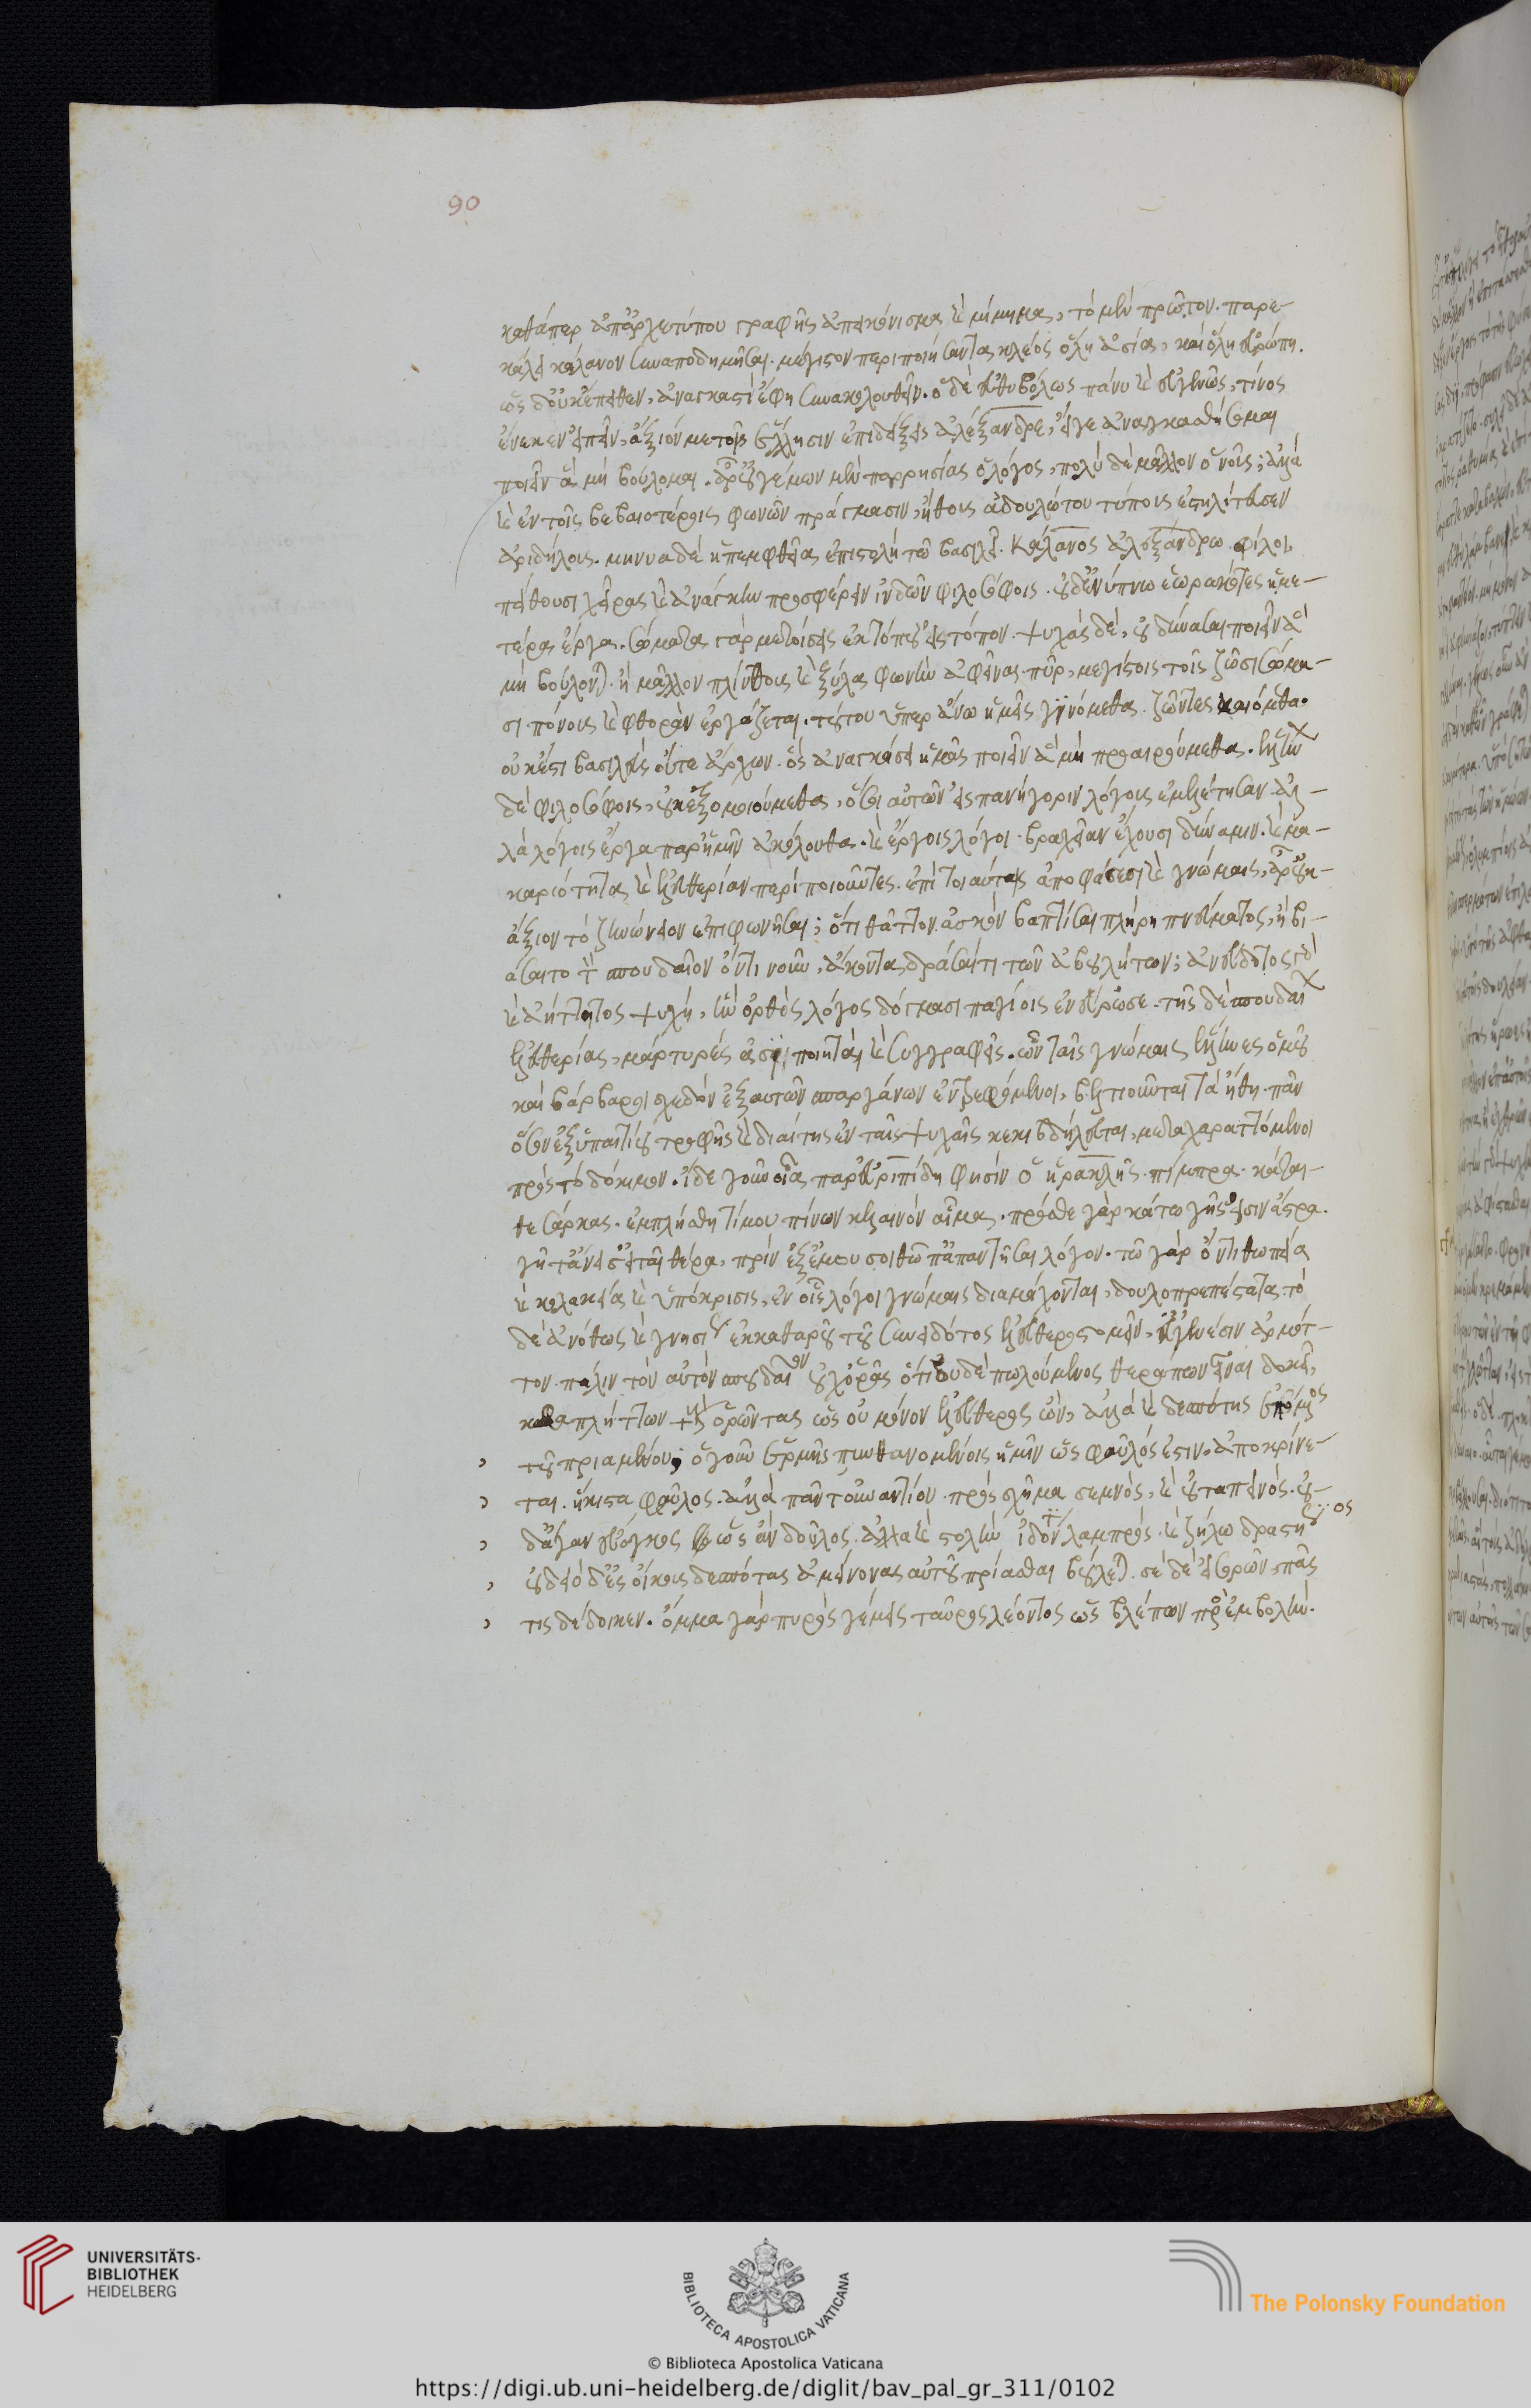 90
καθάπερ ἀπ' ἀρχετύπου γραφῆς ἀπεικόνισμα καὶ μίμημα, τὸ μὲν πρῶτον παρε-
κάλει κάλανον συναποδημῆσαι. μέγιστον περιποιήσαντας κλέος ὅλη ἀσία, καὶ ὅλη εὐρώπη.
ὡς δ' οὐκ ἔπειθεν, ἀναγκάσειν ἔφη συνακολουθεῖν. ὁ δὲ εὐθυβόλως πάνυ καὶ εὐγενῶς, τίνος
ἕνεκεν εἶπεν, ἄξιόν με τοῖς ἕλλησιν ἐπιδείξεις ἀλέξανδρε, εἴγε ἀναγκασθήσομαι
ποιεῖν ἃ μὴ βούλομαι. ἆρ' οὐ γέμων μὲν παρρησίας ὁ λόγος, πολὺ δὲ μᾶλλον ὁ νοῦς; ἀλλὰ
καὶ ἐν τοῖς βεβαιοτέροις φωνῶν πράγμασιν, ἤθους ἀδουλώτου τύπους ἐστηλίτευσεν
ἀριδήλους. μηνύει δὲ ἡ πεμφθεῖσα ἐπιστολὴ τῷ βασιλεῖ. Κάλανος ἀλεξάνδρω. φίλοι
πείθουσι χεῖρας καὶ ἀνάγκην προσφέρειν ἰνδῶν φιλοσόφοις. οὐδ' ἐν ὕπνω ἑωρακότες ἡμε-
τέρα ἔργα. σώματα γὰρ μετοίσεις ἐκ τόπου εἰς τόπον. ψυχὰς δὲ, οὐ δύνασαι ποιεῖν ἃ
μὴ βούλονται. ἢ μᾶλλον πλίνθους καὶ ξύλα φωνὴν ἀφεῖναι. πῦρ, μεγίστους τοῖς ζῶσι σώμα-
σι πόνους καὶ φθορὰν ἐργάζεται. τούτου ὑπεράνω ἡμεῖς γινόμεθα. ζῶντες καιόμεθα.
οὐκ ἔστι βασιλεὺς οὔτε ἄρχων. ὃς ἀναγκάσει ἡμᾶς ποιεῖν ἃ μὴ προαιρούμεθα. ἑλλήνων
δὲ φιλοσόφοις, οὐκ ἐξομοιούμεθα, ὅσοι αὐτῶν εἰς πανήγυριν λόγους ἐμελέτησαν. ἀλ-
λὰ λόγοις ἔργα παρ' ἡμῖν ἀκόλουθα. καὶ ἔργοις λόγοι. βραχεῖαν ἔχουσι δύναμιν. καὶ μα-
καριότητα καὶ ἐλευθερίαν περιποιοῦντες. ἐπὶ τοιαύταις ἀποφάσεσι καὶ γνώμαις, ἆρ' οὐκ
ἄξιον τὸ ζηνώνειον ἐπιφωνῆσαι; ὅτι θᾶττον ἀσκὸν βαπτίσαι πλήρη πνεύματος, ἢ βι-
άσαιτο τὸν σπουδαῖον ὁντινοῦν, ἄκοντα δρᾶσαί τι τῶν ἀβουλήτων; ἀνένδοτος γὰρ
καὶ ἀήττητος ψυχὴ, ἣν ὀρθὸς λόγος δόγμασι παγίοις ἐνεύρωσε. τῆς δὲ σπουδαίων
ἐλευθερίας, μάρτυρές εἰσι ποιηταὶ καὶ συγγραφεῖς. ὧν ταῖς γνώμαις ἕλληνες ὁμοῦ
καὶ βάρβαροι σχεδὸν ἐξ αὐτῶν σπαργάνων ἐντρεφόμενοι, βελτιοῦνται τὰ ἤθη. πᾶν
ὅσον ἐξ ὑπαιτίου τροφῆς καὶ διαίτης ἐν ταῖς ψυχαῖς κεκιβδήλευται, μεταχαραττόμενοι
πρὸς τὸ δόκιμον. ἴδε γοῦν οἷα παρ' εὐριπίδη φησὶν ὁ ἡρακλῆς. πίμπρα. κάται-
θε σάρκας. ἐμπλήσθητί μου πίνων κελαινὸν αἷμα. πρόσθε γὰρ κάτω γῆς εἶσιν ἄστρα.
γῆ τ' ἄνεισ' εἰς αἰθέρα, πρὶν ἐξ ἐμοῦ σοι θῶπ' ἀπαντῆσαι λόγον. τῷ γὰρ ὄντι θωπεία
καὶ κολακεία καὶ ὑπόκρισις, ἐν οἷς λόγοι γνώμαις διαμάχονται, δουλοπρεπέστατα. τὸ
δὲ ἀνόθως καὶ γνησίως ἐκ καθαροῦ τοῦ συνειδότος ἐλευθεροστομεῖν, εὐγενέσιν ἁρμότ-
τον. πάλιν τὸν αὐτὸν σπουδαῖον οὐχ ὁρᾷς ὅτι οὐδὲ πωλούμενος θεράπων εἶναι δοκεῖ,
καταπλήττων τοὺς ὁρῶντας ὡς οὐ μόνον ἐλεύθερος ὢν, ἀλλὰ καὶ δεσπότης ἐσόμενος
τοῦ πριαμένου; ὁ γοῦν ἑρμῆς πυνθανομένοις ἡμῖν ὡς φαῦλός ἐστιν, ἀποκρίνε-
ται. ἥκιστα φαῦλος. ἀλλὰ πᾶν τοὐναντίον. πρὸς σχῆμα σεμνὸς, καὶ οὐ ταπεινός. οὐ-
δ' ἄγαν εὔογκος ὡς ἂν δοῦλος. ἀλλὰ καὶ στολὴν ἰδόντι λαμπρός. καὶ ξύλω δραστήριος
οὐδεὶς δ' ἐς οἴκους δεσπότας ἀμείνονας αὑτοῦ πρίασθαι βούλεται. σὲ δ' εἰσορῶν, πᾶς
τις δέδοικεν. ὄμμα γὰρ πυρὸς γέμεις ταῦρος λέοντος ὡς βλέπων πρὸς ἐμβολήν.
UNIVERSITÄTS-
BIBLIOTHEK
HEIDELBERG
BIBLIOTECA APOSTOLICA VATICANA
The Polonsky Foundation
© Biblioteca Apostolica Vaticana
https://digi.ub.uni-heidelberg.de/diglit/bav_pal_gr_311/0102